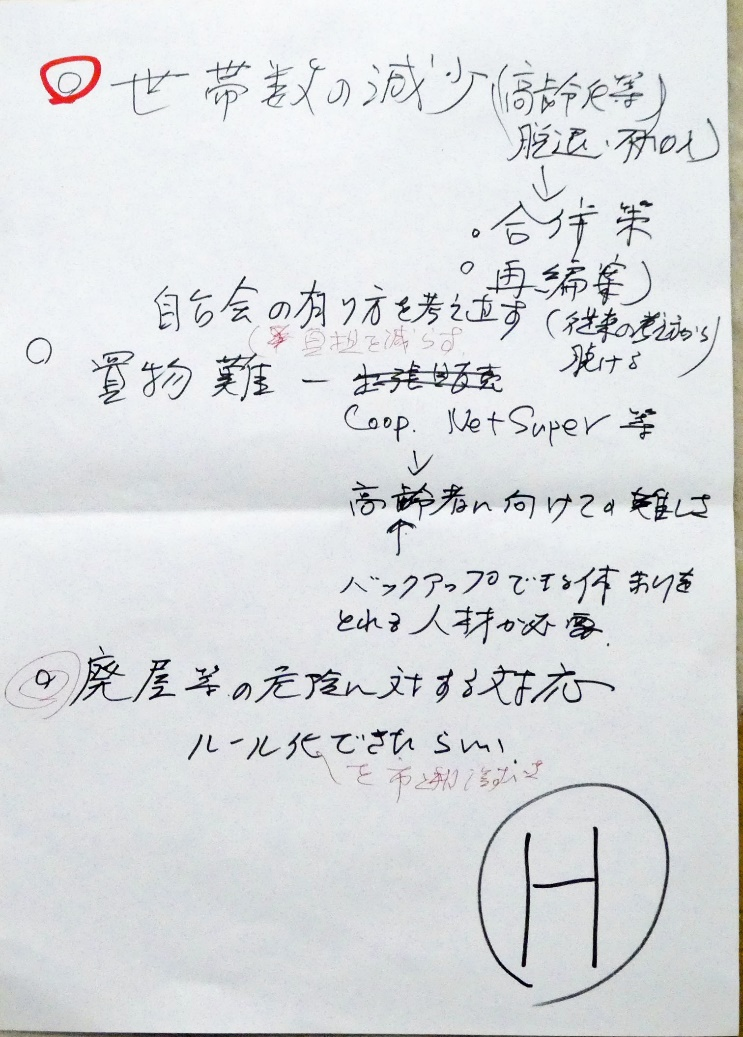 ◎ 世帯数の減少 (高齢化等)
脱退・不加入)
↓
○合併策
○再編案)
自治会の有り方を考え直す (従来の考え方から
負担を減らす
脱ける)
○ 置物難 ー 出張販売
Coop. Net Super 等
↓
高齢者に向けての難しさ
↑
バックアップできる体まりを
とれる人材が必要
◎ 廃屋等の危険に対する対応
ルール化できたらいい
を市と
H